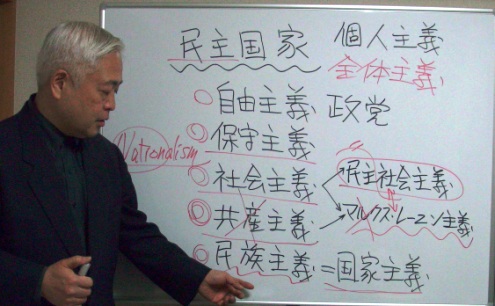 民主国家
個人主義
全体主義
自由主義
政党
保守主義
Nationalism
社会主義
民主社会主義
共産主義
マルクス・レーニン主義
民族主義＝国家主義